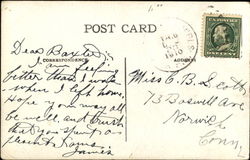 POST CARD
CORRESPONDENCE
ADDRESS
Dear Baxter,
I am feeling
better than I was
when I left home.
Hope you may all
be well, and trust
that you spent a
pleasant
1910
Miss E. B. S.
73 Boswell Ave
Norwich
Conn